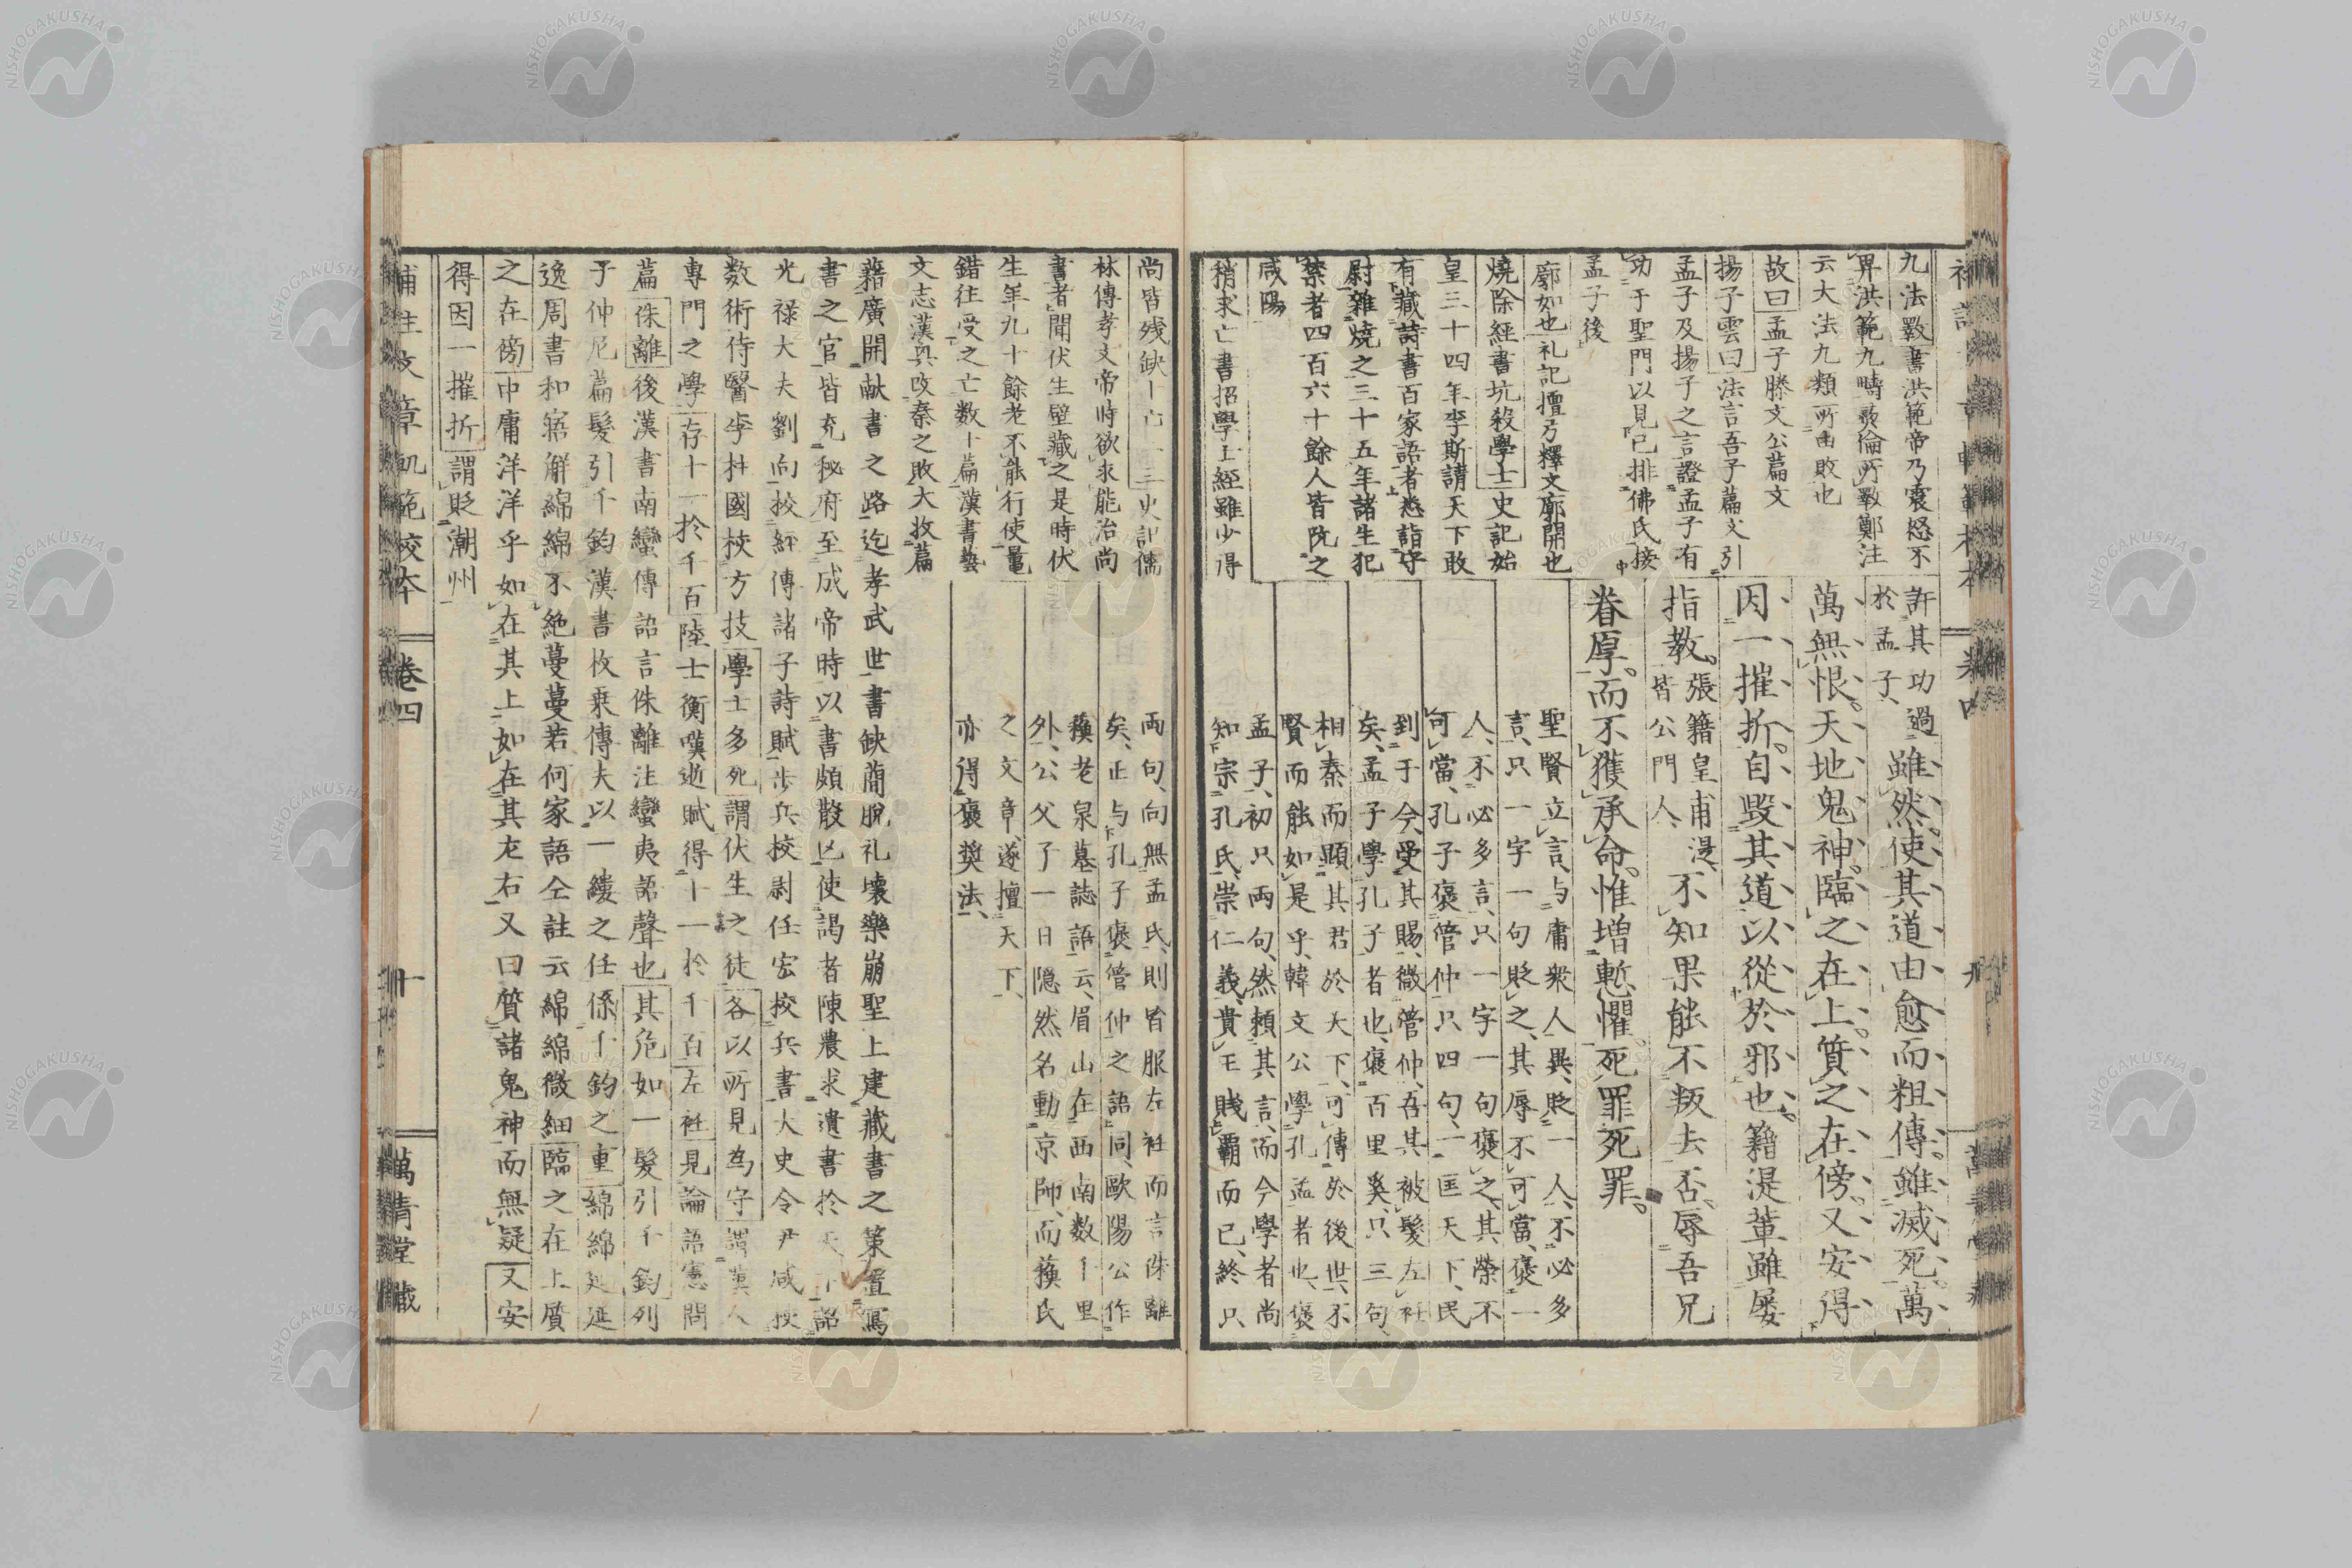 九法斁書洪範帝乃震怒不
畀洪範九疇彛倫所斁鄭注
云大法九類所由敗也
故曰孟子滕文公篇文
揚子雲曰法言吾子篇文引
孟子及揚子之言證孟子有
功于聖門以見已排佛氏接
孟子後
廓如也礼記擅弓釋文廓開也
燒除經書坑殺學士史記始
皇三十四年李斯請天下敢
有藏詩書百家語者悉詣守
尉雜燒之三十五年諸生犯
禁者四百六十餘人皆阬之
咸陽
稍求亡書招學士經雖少得
許其功過
於孟子、
雖然使其道由愈而粗傳雖滅死萬
萬無恨天地鬼神臨之在上質之在傍又安得
因一摧折自毀其道以從於邪也籍湜輩雖屡
指教張籍皇甫湜
皆公門人、
不知果能不叛去否辱吾兄
眷厚而不獲承命惟增慙懼死罪死罪
聖賢立言、与庸衆人異、貶一人、不必多
言、只一字一句貶之、其辱不可當、褒一
人、不必多言、只一字一句褒之、其榮不
可當、孔子褒管仲、只四句、一匡天下、民
到于今、受其賜、微管仲、吾其被髮左衽
矣、孟子學孔子者也、褒百里奚、只三句、
相秦而顯其君於天下、可傳於後世、不
賢而能如是乎、韓文公學孔孟者也、褒
孟子、初只兩句、然頼其言、而今學者尚
知宗孔氏、崇仁義、貴王賤覇而已、終只
尚皆残缺十亡二三史記儒
林傳孝文帝時欲求能治尚
書者聞伏生壁藏之是時伏
生年九十餘老不能行使鼂
錯往受之亡数十篇漢書藝
文志漢興改秦之敗大收篇
兩句、向無孟氏、則皆服左衽而言侏離
矣、正与孔子褒管仲之語同、歐陽公作
蘓老泉墓誌語云、眉山在西南数千里
外、公父子一日隱然名動京師、而蘓氏
之文章、遂擅天下、
亦得褒奬法、
籍廣開献書之路迄孝武世書缺蕳脫礼壊樂崩聖上建藏書之策置寫
書之官皆充秘府至成帝時以書頗散亡使謁者陳農求遺書於天下詔
光禄大夫劉向挍經傳諸子詩賦歩兵挍尉任宏挍兵書大史令尹咸挍
数術侍醫李柱國挍方技學士多死謂伏生之徒各以所見為守謂漢人
專門之學存十一於千百陸士衡嘆逝賦得十一於千百左衽見論語憲問
篇侏離後漢書南蠻傳語言侏離注蠻夷語聲也其危如一髮引千鈞列
子仲尼篇髮引千鈞漢書枚乗傳夫以一縷之任係千鈞之重綿綿延延
逸周書和寤解綿綿不絶蔓蔓若何家語仝註云綿綿微細臨之在上質
之在傍中庸洋洋乎如在其上如在其左右又曰質諸鬼神而無疑又安
得因一摧折謂貶潮州
補註文章軌範校本
卷四
十
萬青堂蔵